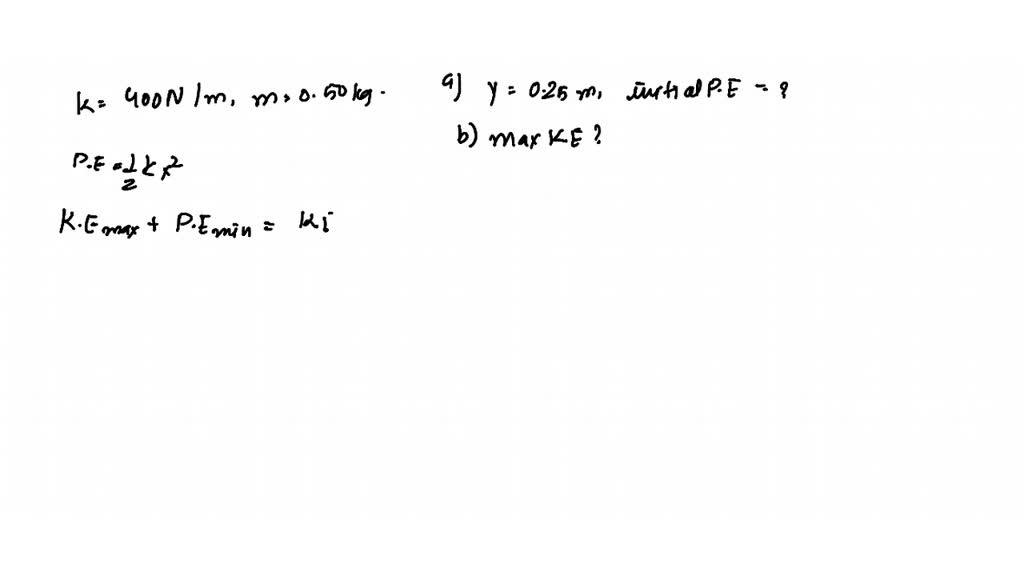 k = 400N/m, m = 0.50kg.
a) y = 0.25 m, initial P.E = ?
b) max KE ?
P.E = 1/2 k x²
K.E max + P.E min = Ki